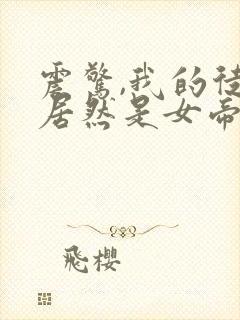 震惊,我的徒
居然是女帝
飛櫻